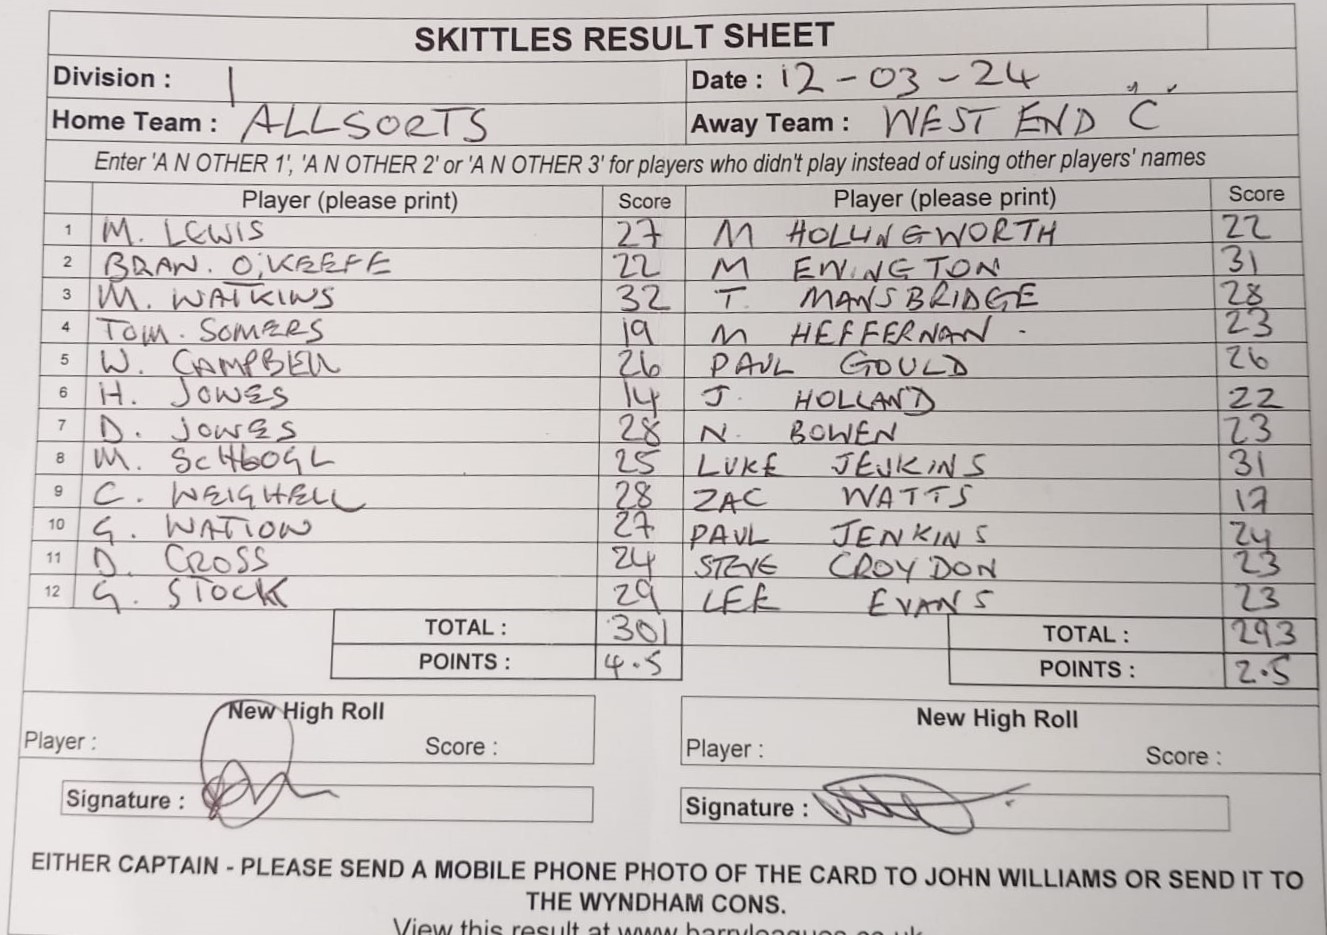 SKITTLES RESULT SHEET
Division : 1 Date : 12-03-24
Home Team : ALLSORTS Away Team : WEST END "C"
Enter 'A N OTHER 1', 'A N OTHER 2' or 'A N OTHER 3' for players who didn't play instead of using other players' names
Player (please print) Score Player (please print) Score
1 M. LEWIS 27 M HOLLINGWORTH 22
2 BRAN. O'KEEFE 22 M EWINGTON 31
3 M. WATKINS 32 T. MANSBRIDGE 28
4 TOM. SOMERS 19 M HEFFERNAN 23
5 W. CAMPBELL 26 PAUL GOULD 26
6 H. JONES 14 J. HOLLAND 22
7 D. JONES 28 N. BOWEN 23
8 M. 25 LUKE JENKINS 31
9 C. WEIGHELL 28 ZAC WATTS 17
10 G. 27 PAUL JENKINS 24
11 D. CROSS 24 STEVE CROYDON 23
12 G. STOCK 29 LEE EVANS 23
TOTAL : 301 TOTAL : 293
POINTS : 4.5 POINTS : 2.5
New High Roll New High Roll
Player : Score : Player : Score :
Signature : Signature :
EITHER CAPTAIN - PLEASE SEND A MOBILE PHONE PHOTO OF THE CARD TO JOHN WILLIAMS OR SEND IT TO
THE WYNDHAM CONS.
View this result at www.barryleagues.co.uk